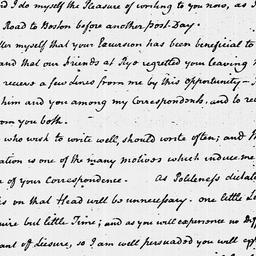 nd I do myself the Pleasure of writing to you now, as I
Road to Boston before another post-Day.
tter myself that your Excursion has been beneficial to
and that our Friends at Rye regretted your leaving
receive a few Lines from me by this Opportunity —
him and you among my Correspondents, and to re
om you both.
who wish to write well, should write often; and
ation is one of the many motives which induce me
e of your Correspondence. As Politeness dictat
is on that Head will be unnecessary. one little Le
uire but little Time; and as you will experience no Di
ant of Leisure, so I am well persuaded you will